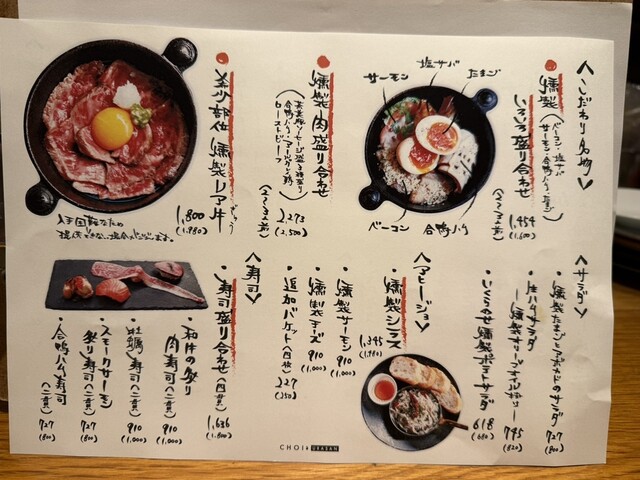 〈こだわり名物〉
燻製いろいろ盛り合わせ
(ベーコン・塩サバ
サーモン・合鴨ハム・たまご)
(2〜3人前)
1,454
(1,600)
サーモン
塩サバ
たまご
ベーコン
合鴨ハム
燻製 肉盛り合わせ
合鴨ハム
ローストビーフ
(2〜3人前)
2,273
(2,500)
希少部位 燻製レア牛
ぎゅう
1,800
(1,980)
入手困難なため
提供できない場合がございます。
〈サラダ〉
・燻製たまごとアボカドのサラダ
727
(800)
・生ハムサラダ
―燻製オリーブオイル搾り―
745
(820)
・いぶりがっこ燻製ポテトサラダ
618
(680)
〈アヒージョ〉
・燻製シュリンプ
1,345
(1,480)
・燻製サーモン
910
(1,000)
・燻製チーズ
910
(1,000)
・追加バケット(四枚)
227
(250)
〈寿司〉
・寿司盛り合わせ(四貫)
1,636
(1,800)
・和牛の炙り
肉寿司(二貫)
910
(1,000)
・牡蠣寿司(二貫)
910
(1,000)
・スモークサーモン
炙り寿司(二貫)
727
(800)
・合鴨ハム寿司
(二貫)
727
(800)
CHOI+